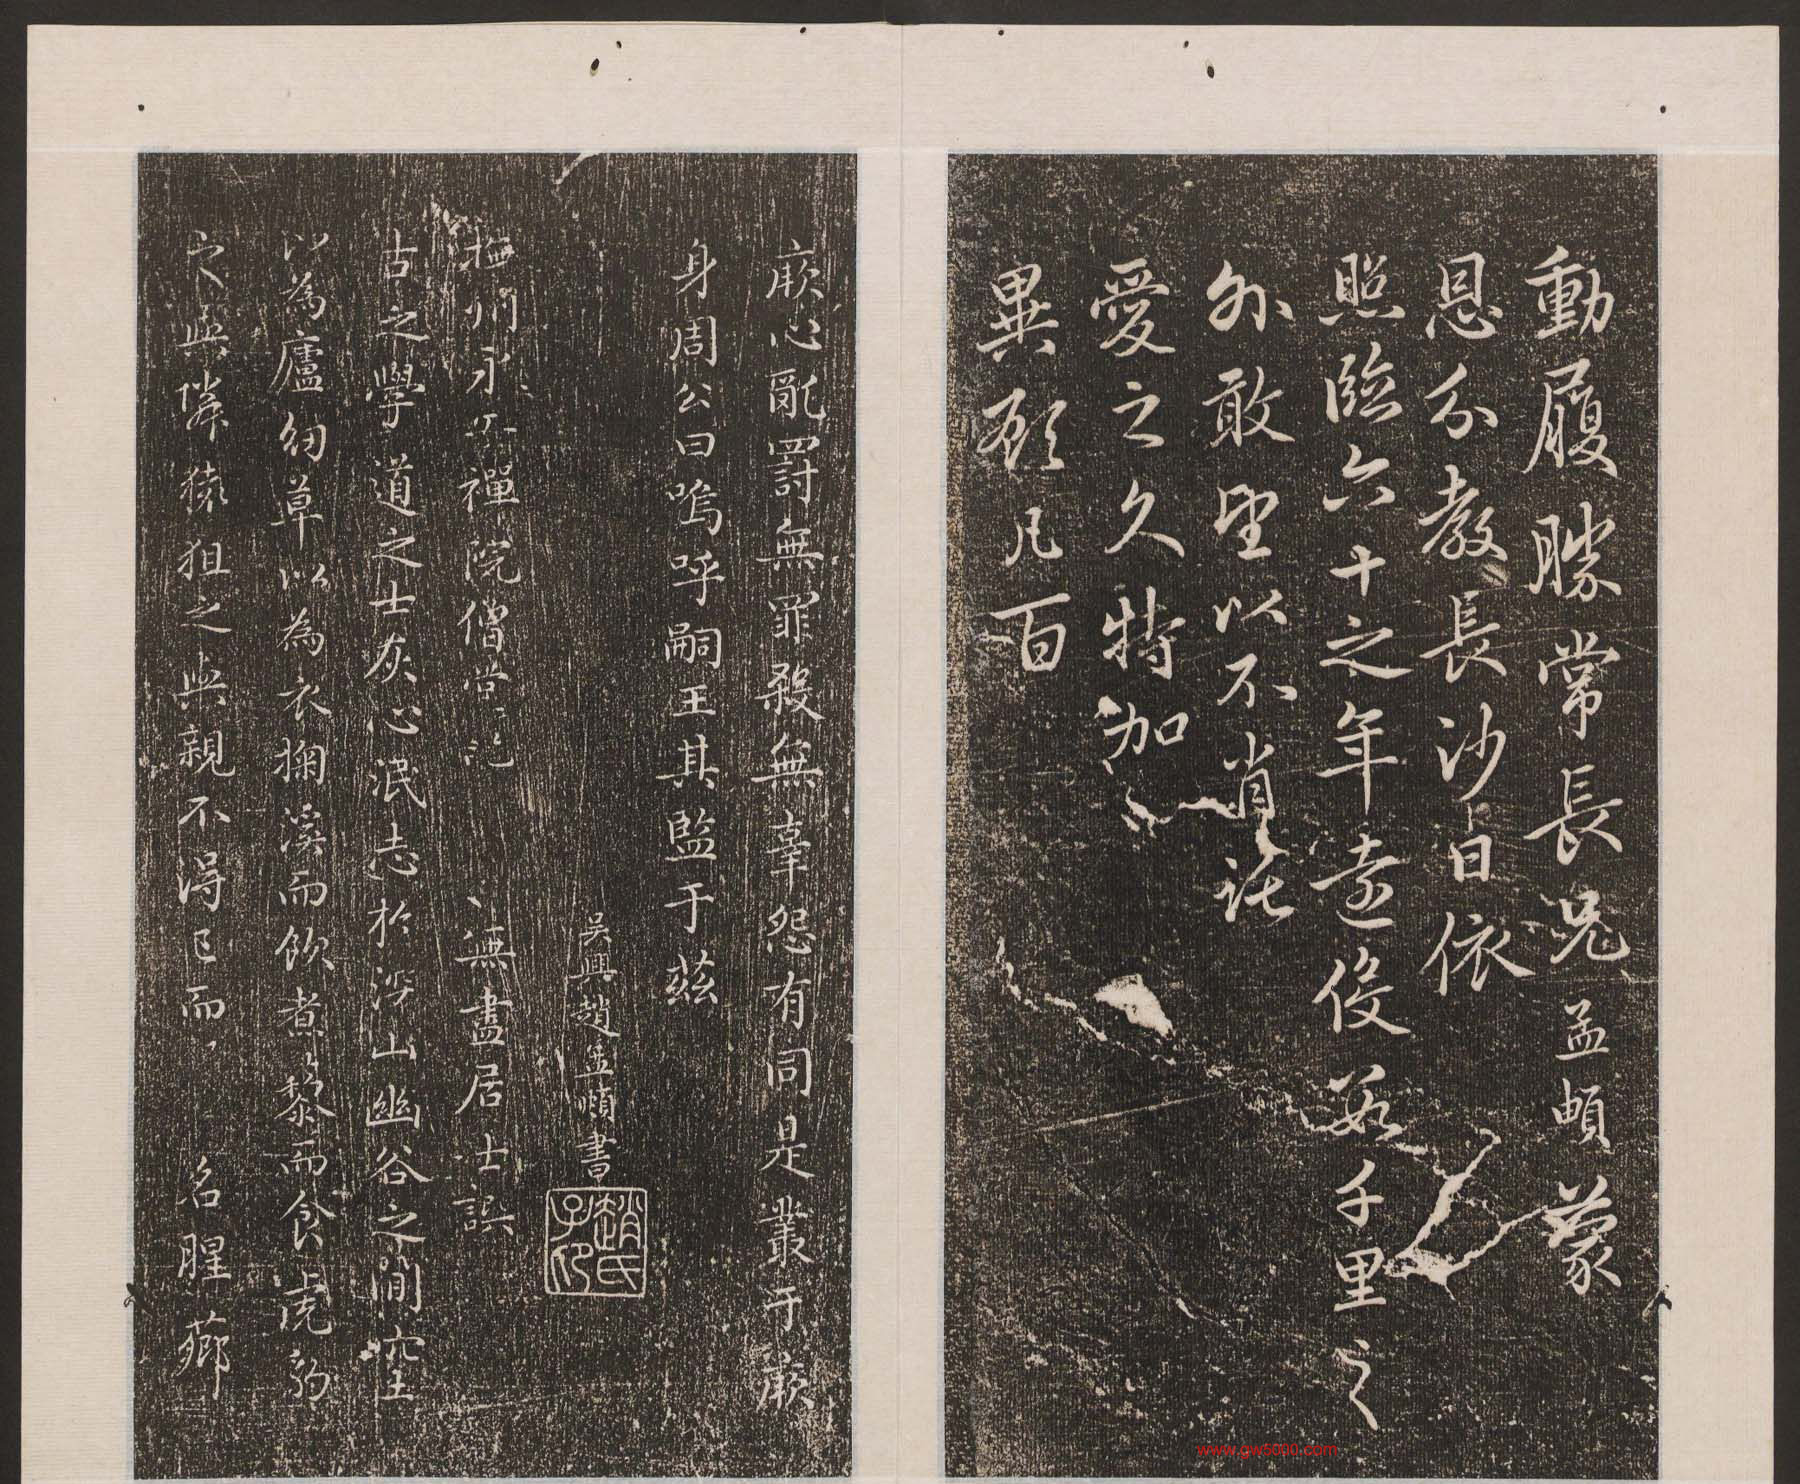 動履勝常長兄孟頫蒙
恩分教長沙日依
照臨六十之年遠役数千里之
外敢望以不肖託
愛之久特加
異顧凡百
厥心亂罰無罪殺無辜怨有同是叢于厥
身周公曰嗚呼嗣王其監于茲
吳興趙孟頫書
趙氏子印
撫州永安禪院僧堂記
無盡居士譔
古之學道之士灰心泯志於深山幽谷之間穴土
以為廬紉草以為衣掬溪而飲煮藜而食虎豹
之與憐猿狙之與親不得已而名腥薌
www.gw5000.com